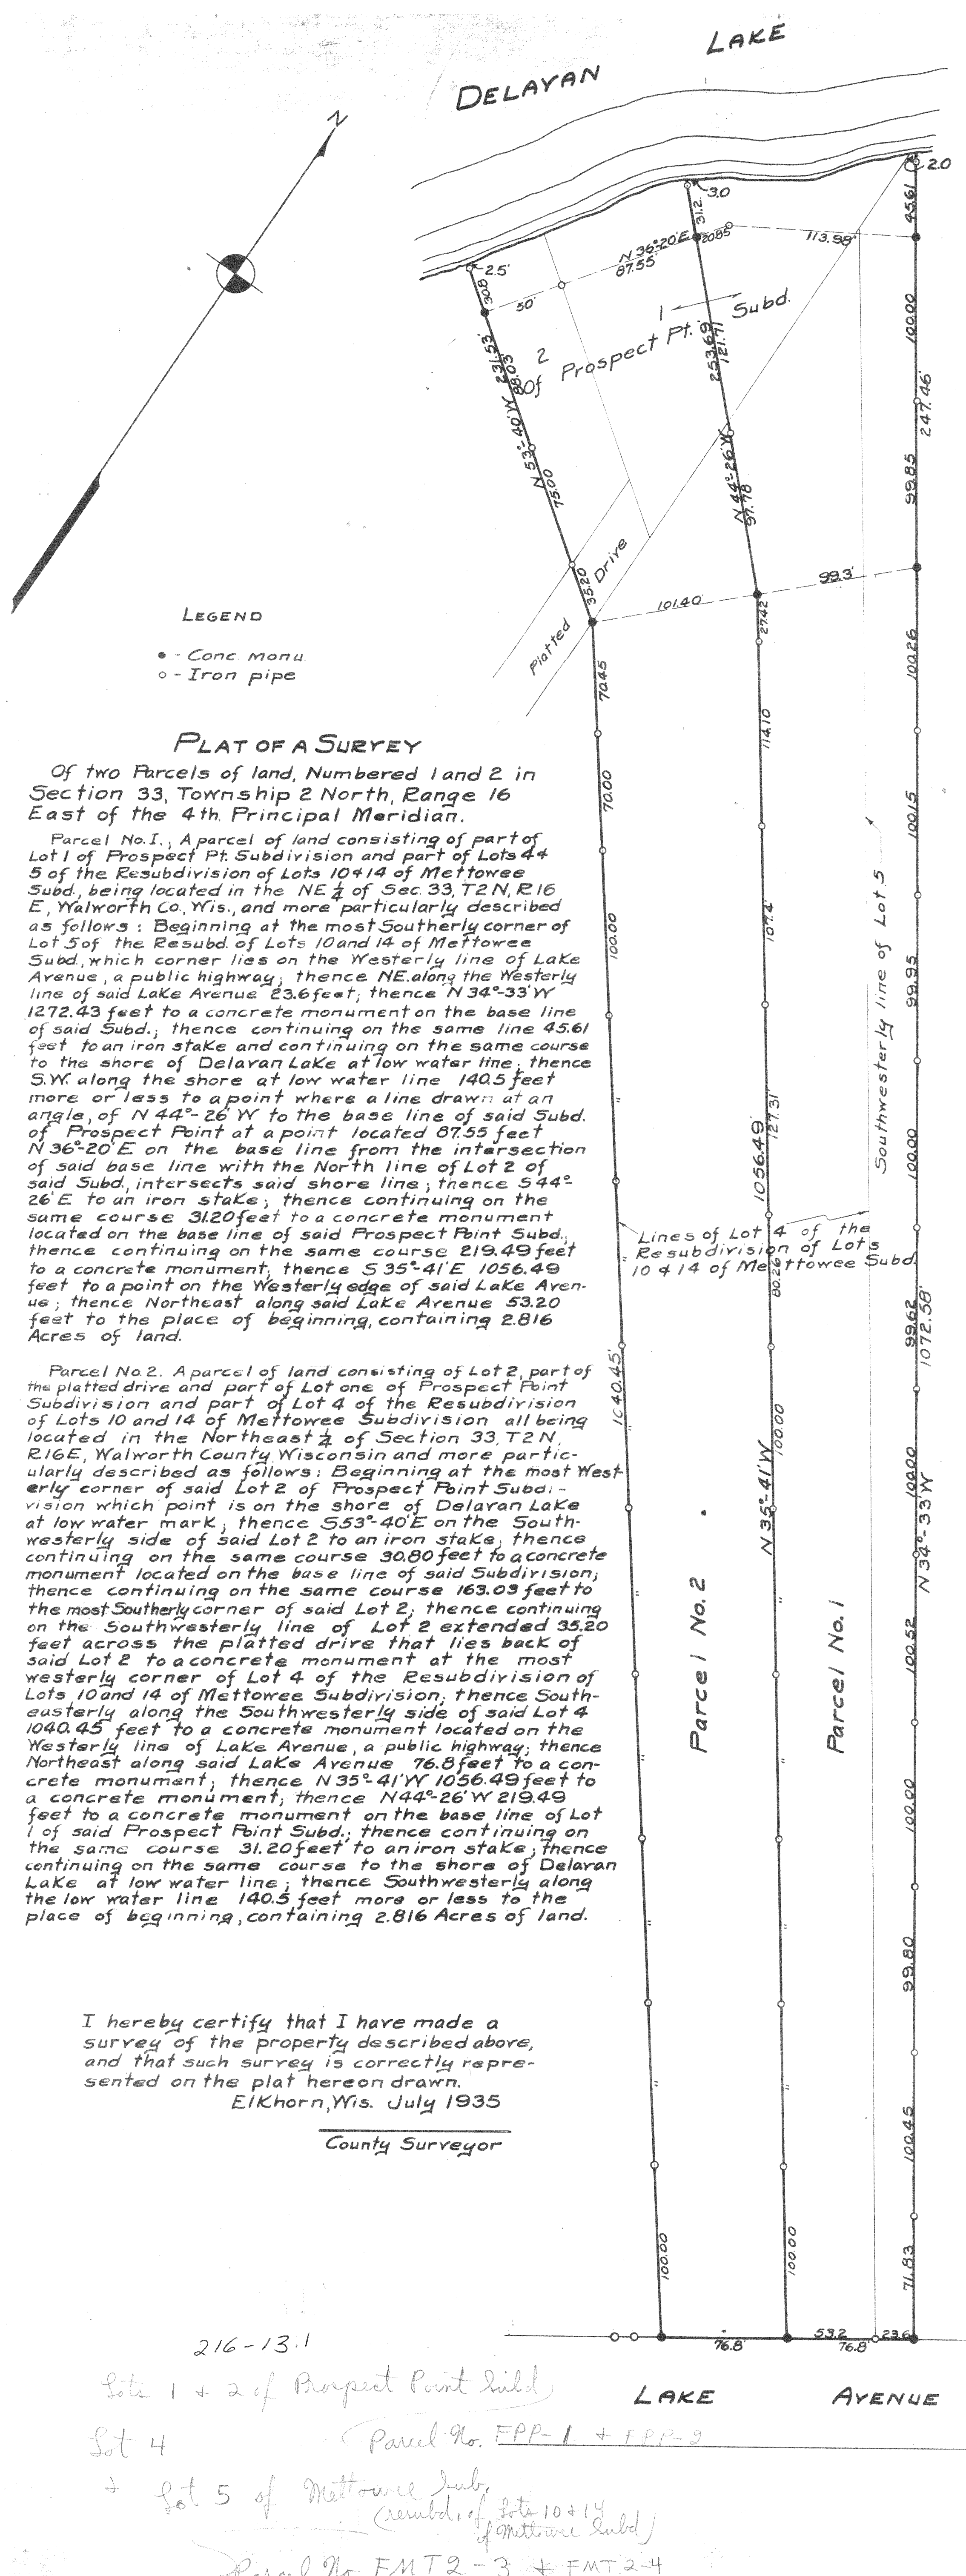 DELAVAN LAKE
N
2.0
3.0
2.5'
45.61
31.2
N 36°-20'E
20.85
113.98'
87.55'
30.8
50'
1
Subd.
100.00
2
Of Prospect Pt.
253.69
121.71
231.53'
88.03
247.46'
N 53°-40'W
75.00
N 44°-26'W
97.78
99.85
Platted Drive
35.20
101.40
99.3'
27.42
LEGEND
● - Conc. monu
○ - Iron pipe
70.45
100.26
114.10
70.00
100.15
PLAT OF A SURVEY
Of two Parcels of land, Numbered 1 and 2 in
Section 33, Township 2 North, Range 16
East of the 4th. Principal Meridian.
Parcel No. I., A parcel of land consisting of part of
Lot 1 of Prospect Pt. Subdivision and part of Lots 4 &
5 of the Resubdivision of Lots 10 & 14 of Mettowee
Subd., being located in the NE ¼ of Sec. 33, T2N, R16
E, Walworth Co., Wis., and more particularly described
as follows : Beginning at the most Southerly corner of
Lot 5 of the Resubd. of Lots 10 and 14 of Mettowee
Subd., which corner lies on the Westerly line of Lake
Avenue, a public highway; thence NE. along the Westerly
line of said Lake Avenue 23.6 feet; thence N 34°-33'W
1272.43 feet to a concrete monument on the base line
of said Subd.; thence continuing on the same line 45.61
feet to an iron stake and continuing on the same course
to the shore of Delavan Lake at low water line; thence
S.W. along the shore at low water line 140.5 feet
more or less to a point where a line drawn at an
angle, of N 44°-26'W to the base line of said Subd.
of Prospect Point at a point located 87.55 feet
N 36°-20'E on the base line from the intersection
of said base line with the North line of Lot 2 of
said Subd., intersects said shore line; thence S 44°-
26'E to an iron stake; thence continuing on the
same course 31.20 feet to a concrete monument
located on the base line of said Prospect Point Subd.;
thence continuing on the same course 219.49 feet
to a concrete monument, thence S 35°-41'E 1056.49
feet to a point on the Westerly edge of said Lake Aven-
ue; thence Northeast along said Lake Avenue 53.20
feet to the place of beginning, containing 2.816
Acres of land.
Parcel No. 2. A parcel of land consisting of Lot 2, part of
the platted drive and part of Lot one of Prospect Point
Subdivision and part of Lot 4 of the Resubdivision
of Lots 10 and 14 of Mettowee Subdivision all being
located in the Northeast ¼ of Section 33, T2N,
R16E, Walworth County Wisconsin and more partic-
ularly described as follows: Beginning at the most West
erly corner of said Lot 2 of Prospect Point Subdi-
vision which point is on the shore of Delavan Lake
at low water mark; thence S53°-40'E on the South-
westerly side of said Lot 2 to an iron stake, thence
continuing on the same course 30.80 feet to a concrete
monument located on the base line of said Subdivision;
thence continuing on the same course 163.03 feet to
the most Southerly corner of said Lot 2; thence continuing
on the Southwesterly line of Lot 2 extended 35.20
feet across the platted drive that lies back of
said Lot 2 to a concrete monument at the most
westerly corner of Lot 4 of the Resubdivision of
Lots 10 and 14 of Mettowee Subdivision; thence South-
easterly along the Southwesterly side of said Lot 4
1040.45 feet to a concrete monument located on the
Westerly line of Lake Avenue, a public highway; thence
Northeast along said Lake Avenue 76.8 feet to a con-
crete monument; thence N35°-41'W 1056.49 feet to
a concrete monument; thence N44°-26'W 219.49
feet to a concrete monument on the base line of Lot
1 of said Prospect Point Subd.; thence continuing on
the same course 31.20 feet to an iron stake; thence
continuing on the same course to the shore of Delavan
Lake at low water line; thence Southwesterly along
the low water line 140.5 feet more or less to the
place of beginning, containing 2.816 Acres of land.
100.00
107.4'
Southwesterly line of Lot 5
99.95
127.31'
1056.49'
100.00
Lines of Lot 4 of the
Resubdivision of Lots
10 & 14 of Mettowee Subd.
80.26
99.62
1072.58'
1040.45'
100.00
N 35°-41'W
100.00
N 34°-33'W
Parcel No. 2
Parcel No. 1
100.52
100.00
99.80
100.45
71.83
100.00
100.00
I hereby certify that I have made a
survey of the property described above,
and that such survey is correctly repre-
sented on the plat hereon drawn.
Elkhorn, Wis. July 1935
County Surveyor
53.2
23.6
76.8'
76.8'
LAKE AVENUE
216-13.1
Lots 1 & 2 of Prospect Point Subd
Parcel No. FPP-1 & FPP-2
Lot 4
& Lot 5 of Mettowee Sub.
(resubd. of Lots 10 & 14
of Mettowee Subd)
Parcel No FMT2-3 & FMT2-4